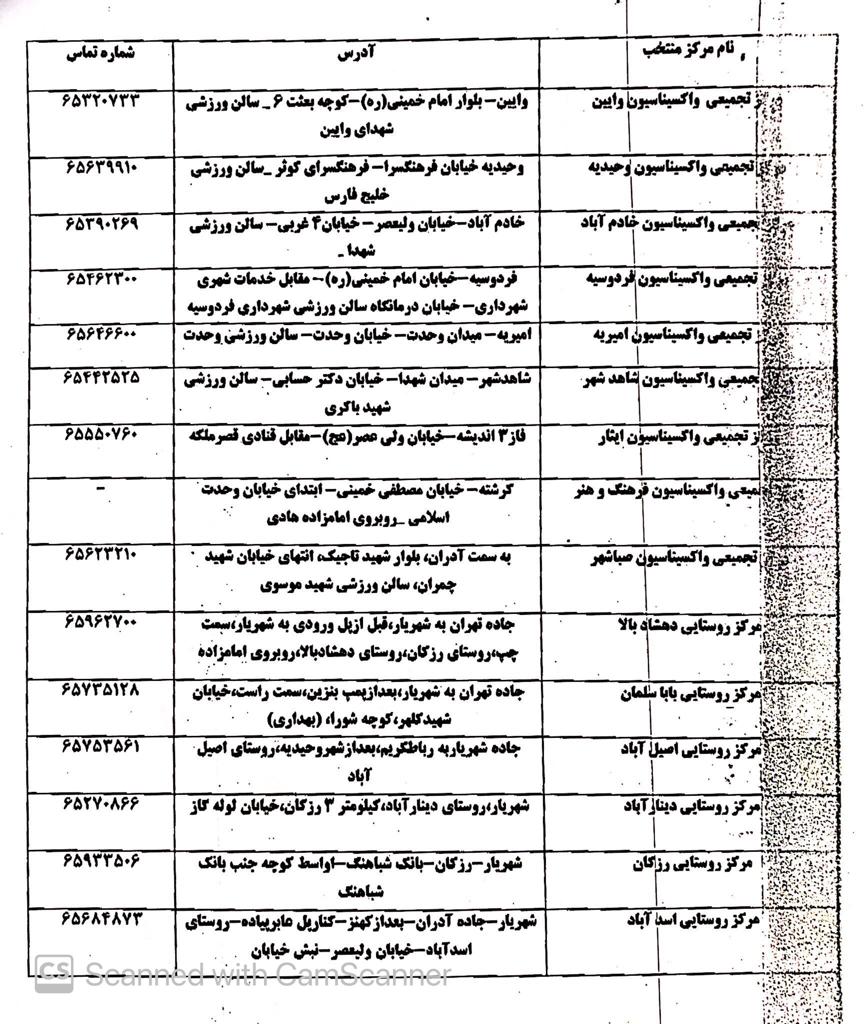 نام مرکز منتخب
آدرس
شماره تماس
تجمیعی واکسیناسیون وایین
وایین- بلوار امام خمینی(ره)-کوچه بعثت ۶ _ سالن ورزشی
شهدای وایین
۶۵۳۲۰۷۳۳
تجمیعی واکسیناسیون وحیدیه
وحیدیه خیابان فرهنگسرا- فرهنگسرای کوثر _سالن ورزشی
خلیج فارس
۶۵۶۳۹۹۱۰
تجمیعی واکسیناسیون خادم آباد
خادم آباد-خیابان ولیعصر- خیابان۴ غربی- سالن ورزشی
شهدا _
۶۵۳۹۰۲۶۹
تجمیعی واکسیناسیون فردوسیه
فردوسیه-خیابان امام خمینی(ره)- مقابل خدمات شهری
شهرداری- خیابان درمانگاه سالن ورزشی شهرداری فردوسیه
۶۵۴۶۲۳۰۰
تجمیعی واکسیناسیون امیریه
امیریه- میدان وحدت- خیابان وحدت- سالن ورزشی وحدت
۶۵۶۴۶۶۰۰
جمیعی واکسیناسیون شاهد شهر
شاهدشهر- میدان شهدا- خیابان دکتر حسابی- سالن ورزشی
شهید باکری
۶۵۴۴۲۵۲۵
ز تجمیعی واکسیناسیون ایثار
فاز۳ اندیشه-خیابان ولی عصر(عج)-مقابل قنادی قصرملکه
۶۵۵۵۰۷۶۰
میعی واکسیناسیون فرهنگ و هنر
کرشته- خیابان مصطفی خمینی- ابتدای خیابان وحدت
اسلامی _روبروی امامزاده هادی
-
تجمیعی واکسیناسیون صباشهر
به سمت آدران، بلوار شهید تاجیک، انتهای خیابان شهید
چمران، سالن ورزشی شهید موسوی
۶۵۶۲۳۲۱۰
مرکز روستایی دهشاد بالا
جاده تهران به شهریار،قبل ازپل ورودی به شهریار،سمت
چپ،روستای رزکان،روستای دهشادبالا،روبروی امامزاده
۶۵۹۶۲۷۰۰
مرکز روستایی بابا سلمان
جاده تهران به شهریار،بعدازپمپ بنزین،سمت راست،خیابان
شهیدکلهر،کوچه شورا، (بهداری)
۶۵۷۳۵۱۲۸
مرکز روستایی اصیل آباد
جاده شهریاربه رباطکریم،بعدازشهروحیدیه،روستای اصیل
آباد
۶۵۷۵۳۵۶۱
مرکز روستایی دینارآباد
شهریار،روستای دینارآباد،کیلومتر ۳ رزکان،خیابان لوله گاز
۶۵۲۷۰۸۶۶
مرکز روستایی رزکان
شهریار-رزکان-بانک شباهنگ-اواسط کوچه جنب بانک
شباهنگ
۶۵۹۳۳۵۰۶
مرکز روستایی اسدآباد
شهریار-جاده آدران-بعدازکهنز-کنارپل عابرپیاده-روستای
اسدآباد-خیابان ولیعصر-نبش خیابان
۶۵۶۸۴۸۷۳
CS Scanned with CamScanner